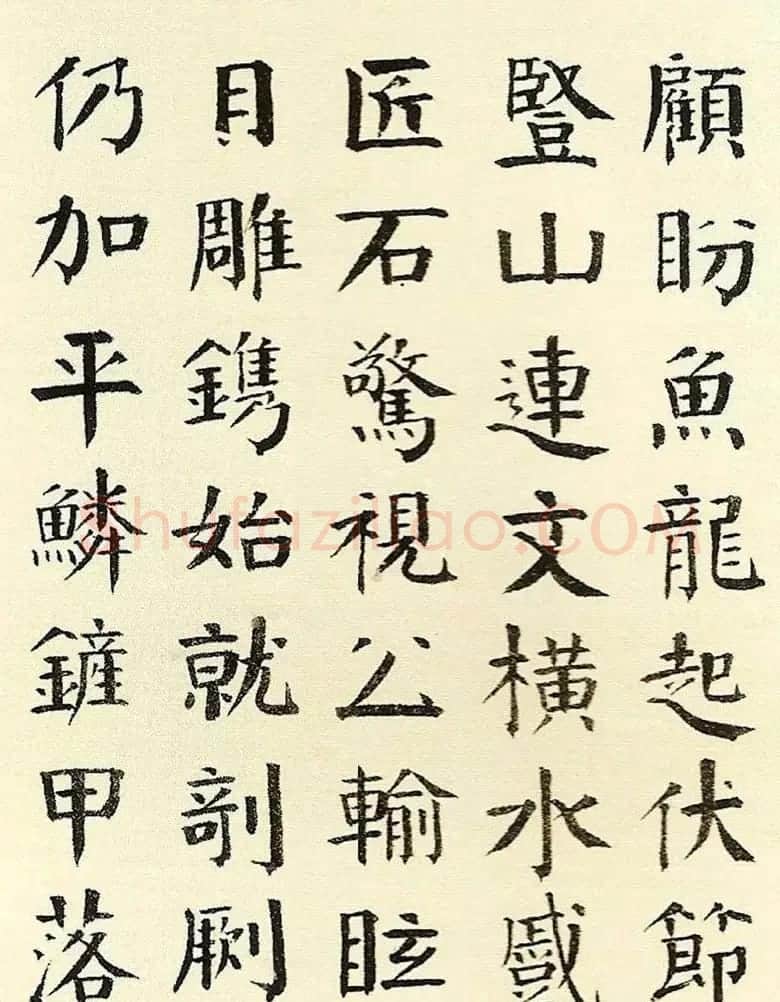 顧盼魚龍起伏節
豎山連文橫水
匠石驚視公輸眩
目雕鐫始就剞劂
仍加平鱗鏟甲落
shufaziliao.COM